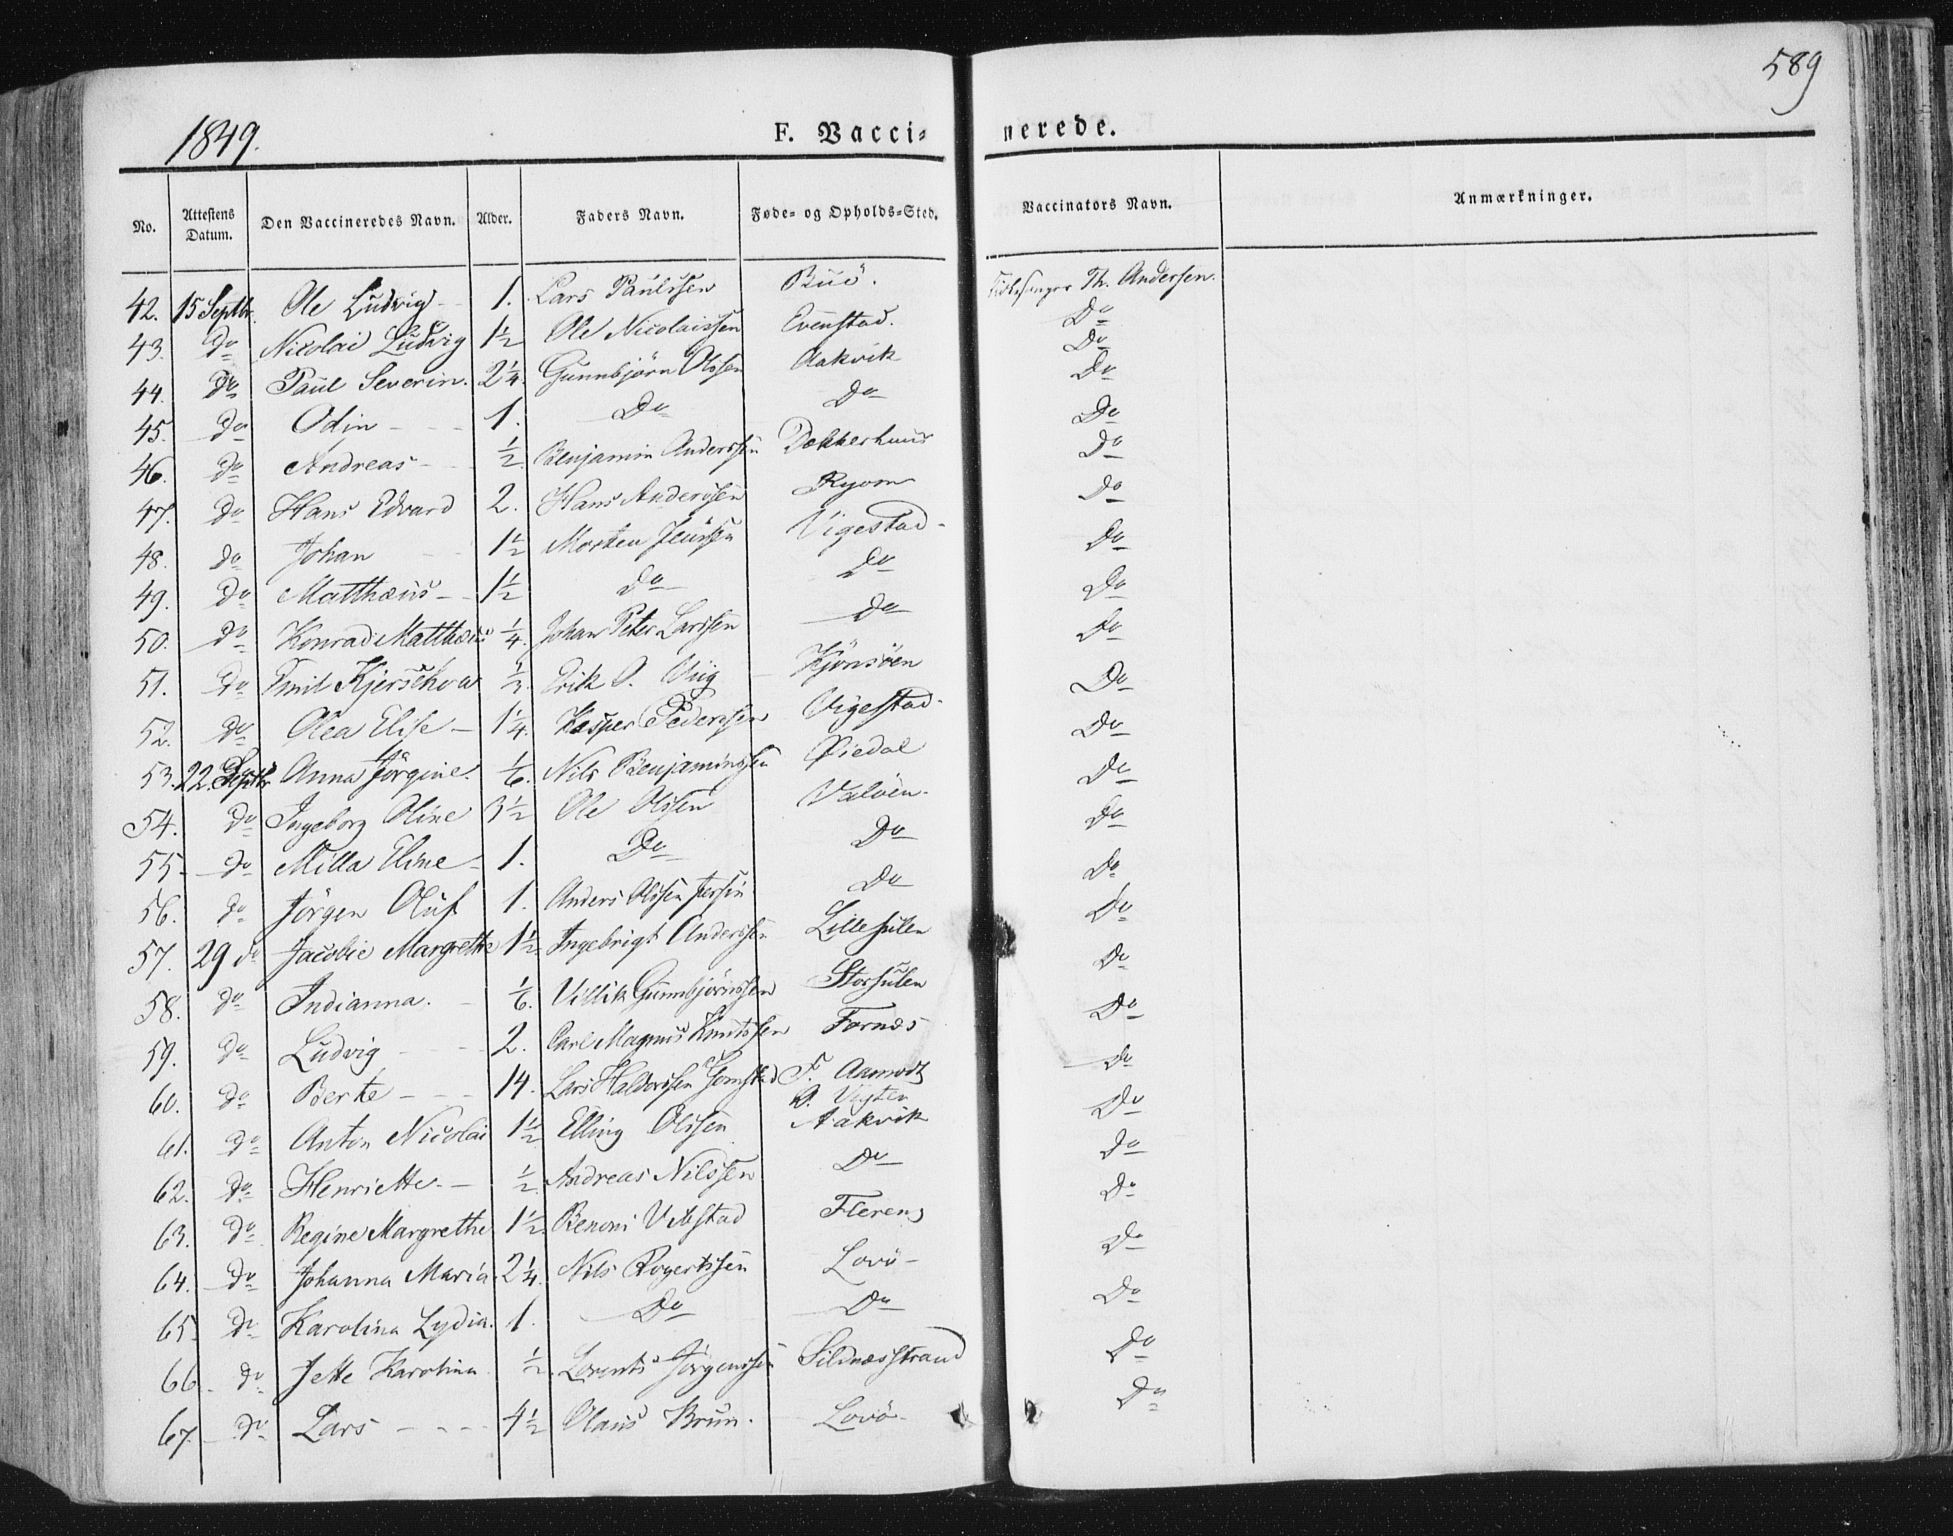 589
1849.
F. Vacci= nerede.
No. Attestens Datum. Den Vaccineredes Navn. Alder. Faders Navn. Føde= og Opholds=Sted. Vaccinators Navn. Anmærkninger.
42. 15 Septbr. Ole Ludvig - 1. Lars Paulssen Buö. Th. Andersen.
43. Do Nicolai Ludvig 1½ Ole Nicolaissen Evenstad. Do
44. Do Paul Severin. 2¼. Gunnbjörn Olssen Aakvik Do
45. Do Odin - - 1. Do Do Do
46. Do Andreas - ½ Benjamin Anderssen Dekkerhuus Do
47. Do Hans Edvard 2. Hans Anderssen Ryom Do
48. Do Johan - - 1½ Morten Jenssen Vigestad - Do
49. Do Matthæus - - 1½ Do Do Do
50. Do Konrad Matthæus ¼. Johan Peter Larssen Do Do
51. Do Emil Kjerschow ⅓. Erik O. Viig Kjönsöen Do
52. Do Olea Elise - 1¼. Kasper Pederssen Vigestad. Do
53. 22. Septbr Anna Jörgine. ⅙. Nils Benjaminssen Öiedal Do
54. Do Ingeborg Oline 3½ Ole Olssen Valöen. Do
55. Do Milla Eline - 1. Do Do Do
56. Do Jörgen Oluf 1. Anders Olssen Do Do
57. 29 do Jacobie Margrethe 1½. Ingebrigt Anderssen Lillesulen Do
58. Do Indianna. - ⅙. Villik Gunnbjörnssen Storsulen Do
59. Do Ludvig - - 2. Carl Magnus Knutssen Fornes Do
60. Do Berte - - - 14. Lars Haldorssen F. Aamodt O. Vigten Do
61. Do Anton Nicolai 1½ Elling Olssen Aakvik Do
62. Do Henriette. - ½. Andreas Nilssen Do Do
63. Do Regine Margrethe 1½. Benoni Vibstad Flereng Do
64. Do Johanna Maria. 2¼. Nils Rogertssen Lovö - Do
65. Do Karolina Lydia. 1. Do Do Do
66. Do Jette Karolina ½. Lorents Jörgenssen Sildnæsstrand Do
67. Do Lars - - - 4½ Olaus Brun. Lovö. Do